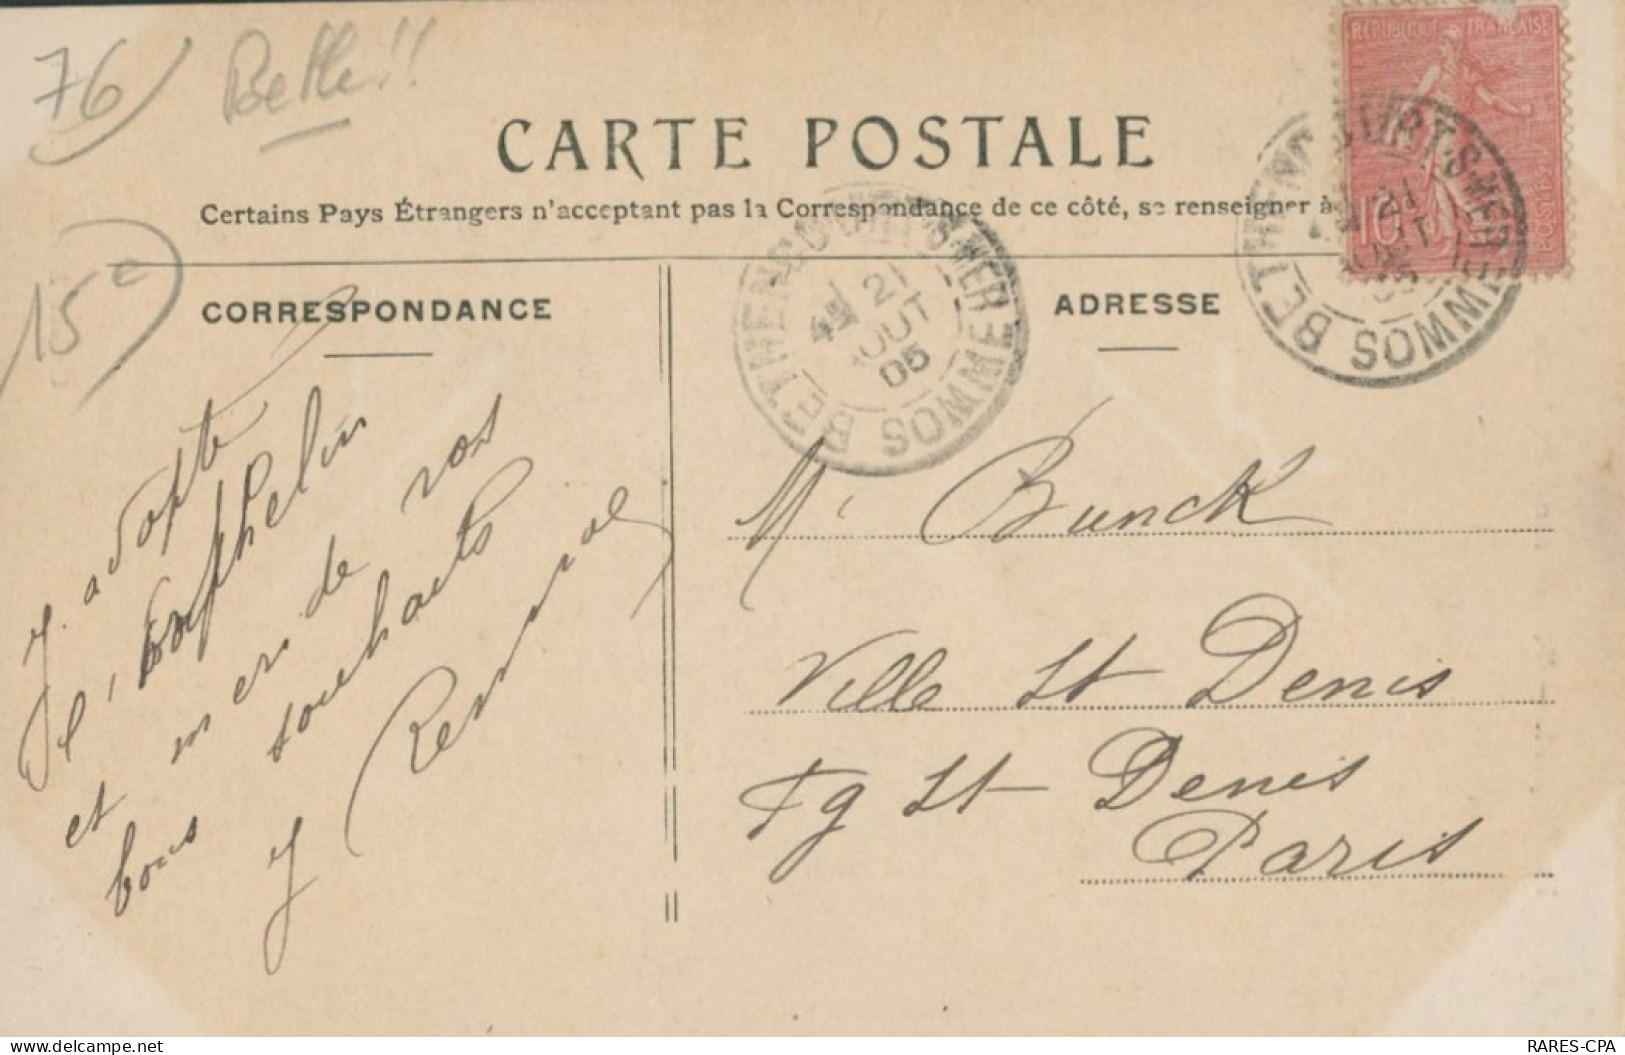 76
Belle!!
15c
CARTE POSTALE
Certains Pays Étrangers n'acceptant pas la Correspondance de ce côté, se renseigner à
CORRESPONDANCE
ADRESSE
RÉPUBLIQUE FRANÇAISE
10
POSTES
BETHENCOURT-S-MER SOMME
21
AOUT
05
BETHENCOURT-S-MER SOMME
21
AOUT
05
J. adopte
l'Orphelin
et merci de vos
bons souhaits
J
Mr Bunck
Ville St Denis
Fg St Denis
Paris
delcampe.net
RARES-CPA